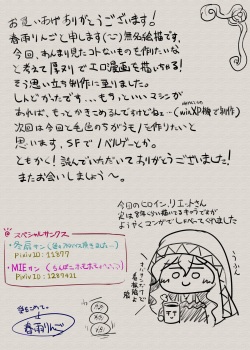 お買いあげありがとうございます!
春雨りんごと申します(ﾆ)無名絵描です。
今回、あんまり見たコトないものを作りたいな
と考えて厚ヌリでエロ漫画を描いちゃる!
そう思い立ち制作に至りました。
しんどかったです…。もうちょっといいマシンが
あれば、もっとかきこめるんですけどねぇ…(winXP機で制作)
次回は今回と毛色のちがうモノを作りたいと
思います。SFでノベルゲーとか。
ともかく!読んでいただいてありがとうございました!
またお会いしましょう〜。
今回のヒロイン、リエットさん
実は8年くらい描いてるキャラですが
ようやくマンガでしゃべってくれました
@スペシャルサンクス
・冬扇サン
Pixiv ID: 11877
・MIEサン
Pixiv ID: 1287421
春雨りんご